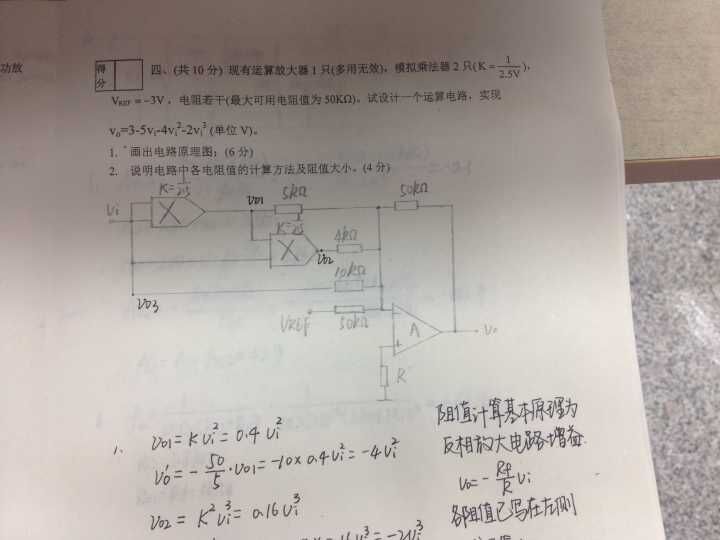 功放
得分
四、(共 10 分) 现有运算放大器 1 只(多用无效)，模拟乘法器 2 只(K = 1/2.5V)，
V_REF = −3V，电阻若干(最大可用电阻值为 50KΩ)。试设计一个运算电路，实现
v₀=3-5vᵢ-4vᵢ²-2vᵢ³ (单位 V)。
1. 画出电路原理图；(6 分)
2. 说明电路中各电阻值的计算方法及阻值大小。(4 分)
K=1/2.5
Vi
X
Vo1
5kΩ
50kΩ
K=1/2.5
X
Vo2
4kΩ
10kΩ
Vo3
VREF
50kΩ
A
−
+
Vo
R'
1.
Vo1=KVi²=0.4Vi²
Vo'=-50/5·Vo1=-10×0.4Vi²=-4Vi²
Vo2=K²Vi³=0.16Vi³
阻值计算基本原理为
反相放大电路增益
Vo=-Rf/R Vi
各阻值已写在左侧
=-2Vi³